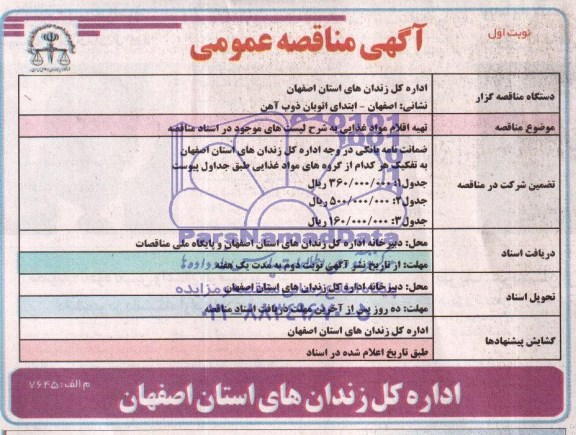 نوبت اول
آگهی مناقصه عمومی
دستگاه مناقصه گزار
اداره کل زندان های استان اصفهان
نشانی: اصفهان - ابتدای اتوبان ذوب آهن
موضوع مناقصه
تهیه اقلام مواد غذایی به شرح لیست های موجود در اسناد مناقصه
تضمین شرکت در مناقصه
ضمانت نامه بانکی در وجه اداره کل زندان های استان اصفهان
به تفکیک هر کدام از گروه های مواد غذایی طبق جداول پیوست
جدول۱: ۳۶۰/۰۰۰/۰۰۰ ریال
جدول۲: ۵۰۰/۰۰۰/۰۰۰ ریال
جدول۳: ۱۶۰/۰۰۰/۰۰۰ ریال
دریافت اسناد
محل: دبیرخانه اداره کل زندان های استان اصفهان و پایگاه ملی مناقصات
مهلت: از تاریخ نشر آگهی نوبت دوم به مدت یک هفته
تحویل اسناد
محل: دبیرخانه اداره کل زندان های استان اصفهان
مهلت: ده روز پس از آخرین مهلت دریافت اسناد مناقصه
گشایش پیشنهادها
اداره کل زندان های استان اصفهان
طبق تاریخ اعلام شده در اسناد
م الف: ۷۶۴۵
اداره کل زندان های استان اصفهان
ParsNamadData
۰۲۱-۸۸۳۴۹۶۷۰-۵